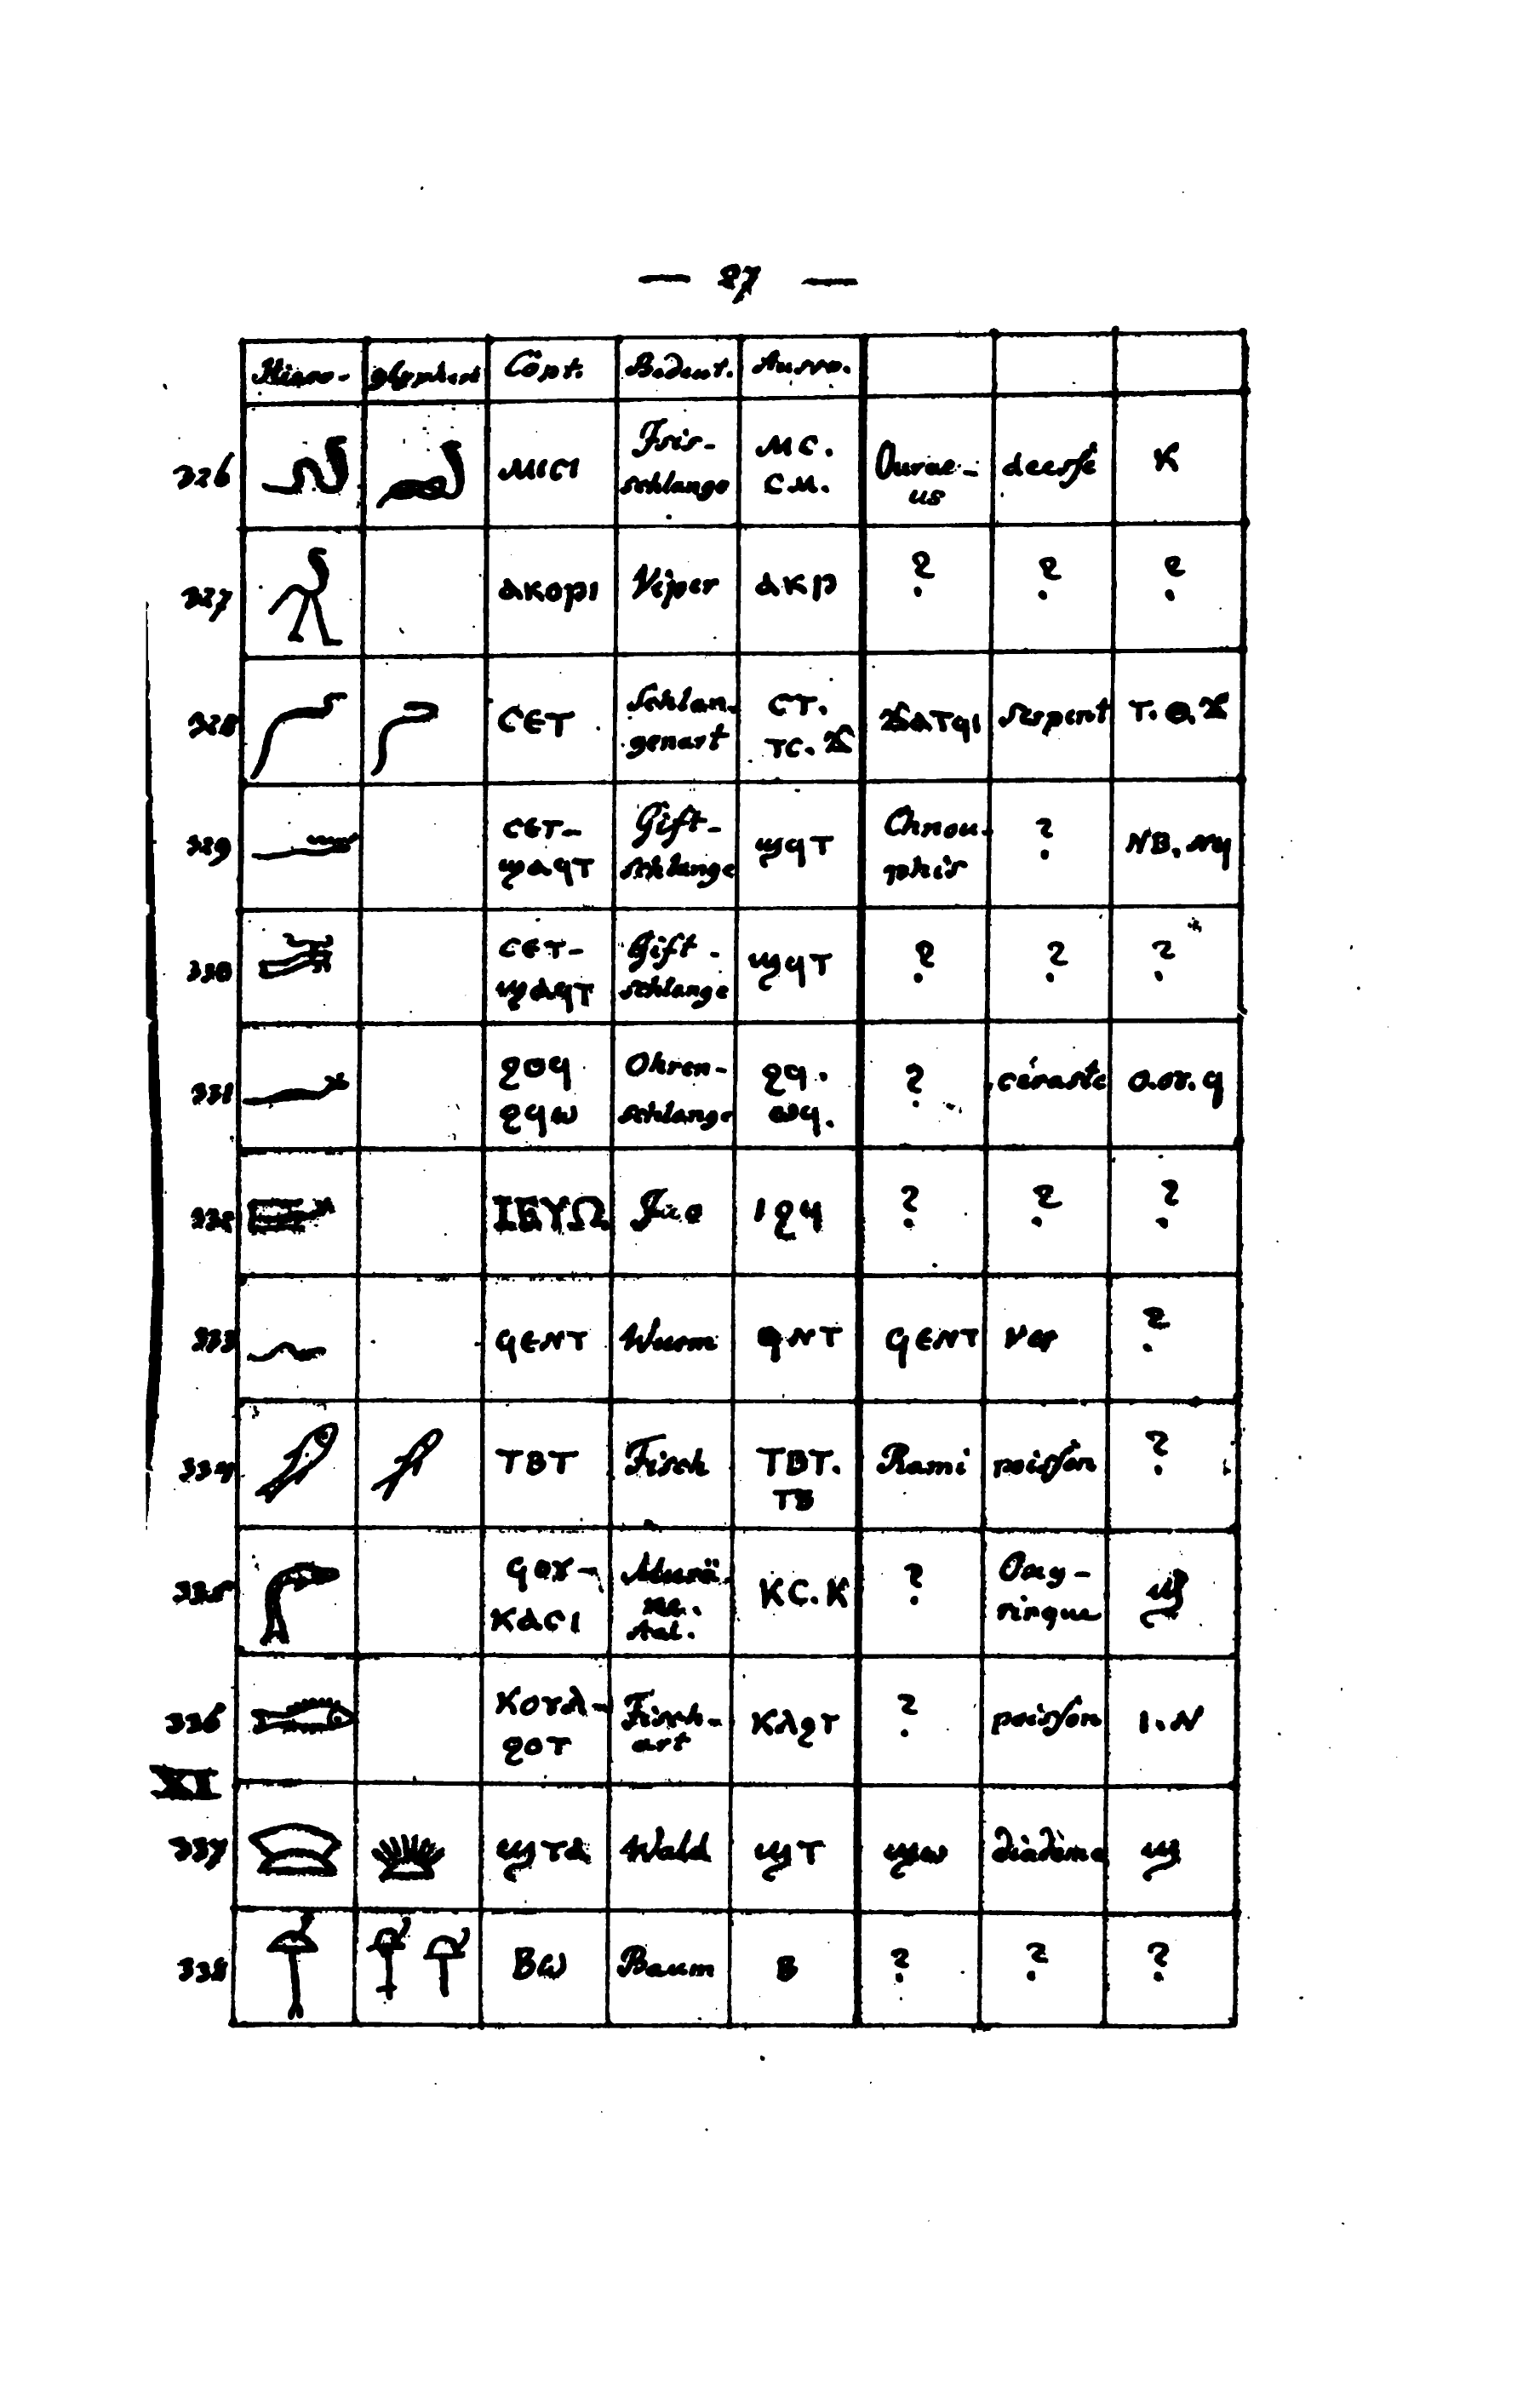 — 27 —
Hiero- glyphen Copt. Bedeut. Ausspr.
326 ⲙⲓⲥⲓ Isis- schlange ⲙⲥ. ⲥⲙ. Ourae- us deesse K
327 ⲁⲕⲟⲣⲓ Viper ⲁⲕⲣ ? ? ?
328 ⲥⲉⲧ Schlan- genart ⲥⲧ. ⲧⲥ. ϫ ϫⲁⲧϥⲓ serpent ⲧ. ⲑ. ϫ
329 ⲥⲉⲧ- ϣⲁϥⲧ Gift- schlange ϣϥⲧ Chnou- phis ? ⲛⲃ. ⲛϥ
330 ⲥⲉⲧ- ϣⲁϥⲧ Gift- schlange ϣϥⲧ ? ? ?
331 ϩⲟϥ ϩϥⲱ Ohren- schlange ϩϥ. ⲱϥ. ? céraste ⲟ. ⲟⲩ. ϥ
332 ΙΕΥΩ ⲓϩϥ ? ? ?
333 ϥⲉⲛⲧ Wurm ϥⲛⲧ ϥⲉⲛⲧ Ver ?
334 ⲧⲃⲧ Fisch ⲧⲃⲧ. ⲧⲃ Rami poisson ?
335 ϥⲟⲩ- ⲕⲁⲥⲓ Murä- ne. Aal. ⲕⲥ. ⲕ ? Oxy- rinque ϣ
336 ⲕⲟⲩⲗ- ϩⲟⲧ Fisch- art ⲕⲗϩⲧ ? poisson ⲓ. ⲛ
XI
337 ϣⲧⲁ Wald ϣⲧ ϣⲱ diadème ϣ
338 ⲃⲱ Baum ⲃ ? ? ?